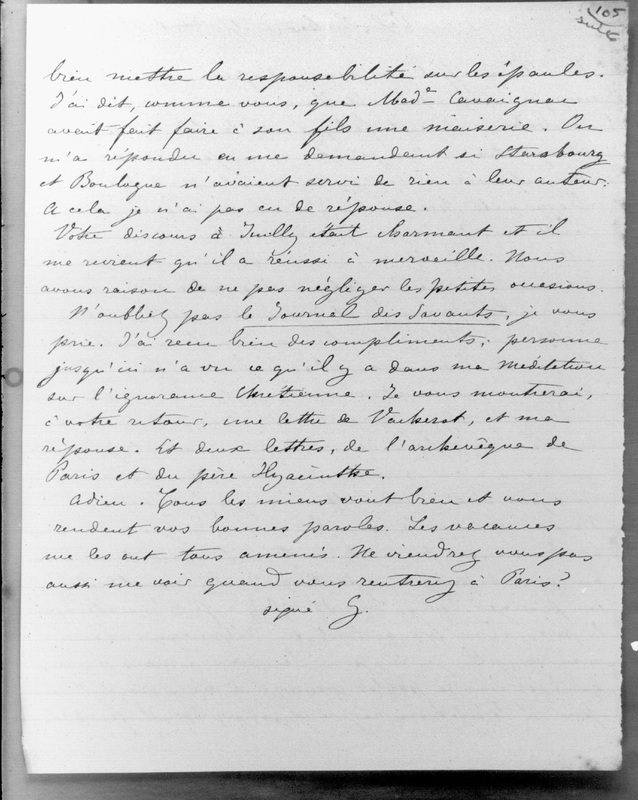 105
suite
bien mettre la responsabilité sur les épaules.
J'ai dit, comme vous, que Made Cavaignac
avait fait faire à son fils une niaiserie. On
m'a répondu en me demandant si Strasbourg
et Boulogne n'avaient servi de rien à leur auteur.
A cela je n'ai pas eu de réponse.
Votre discours à Juilly était charmant et il
me revient qu'il a réussi à merveille. Nous
avons raison de ne pas négliger les petites occasions.
N'oubliez pas le Journal des Savants, je vous
prie. J'ai reçu bien des compliments; personne
jusqu'ici n'a vu ce qu'il y a dans ma méditation
sur l'ignorance chrétienne. Je vous montrerai,
à votre retour, une lettre de Vacherot, et ma
réponse. Et deux lettres, de l'archevêque de
Paris et du père Hyacinthe.
Adieu. Tous les miens vont bien et vous
rendent vos bonnes paroles. Les vacances
me les ont tous amenés. Ne viendrez vous pas
aussi me voir quand vous rentrerez à Paris?
signé G.